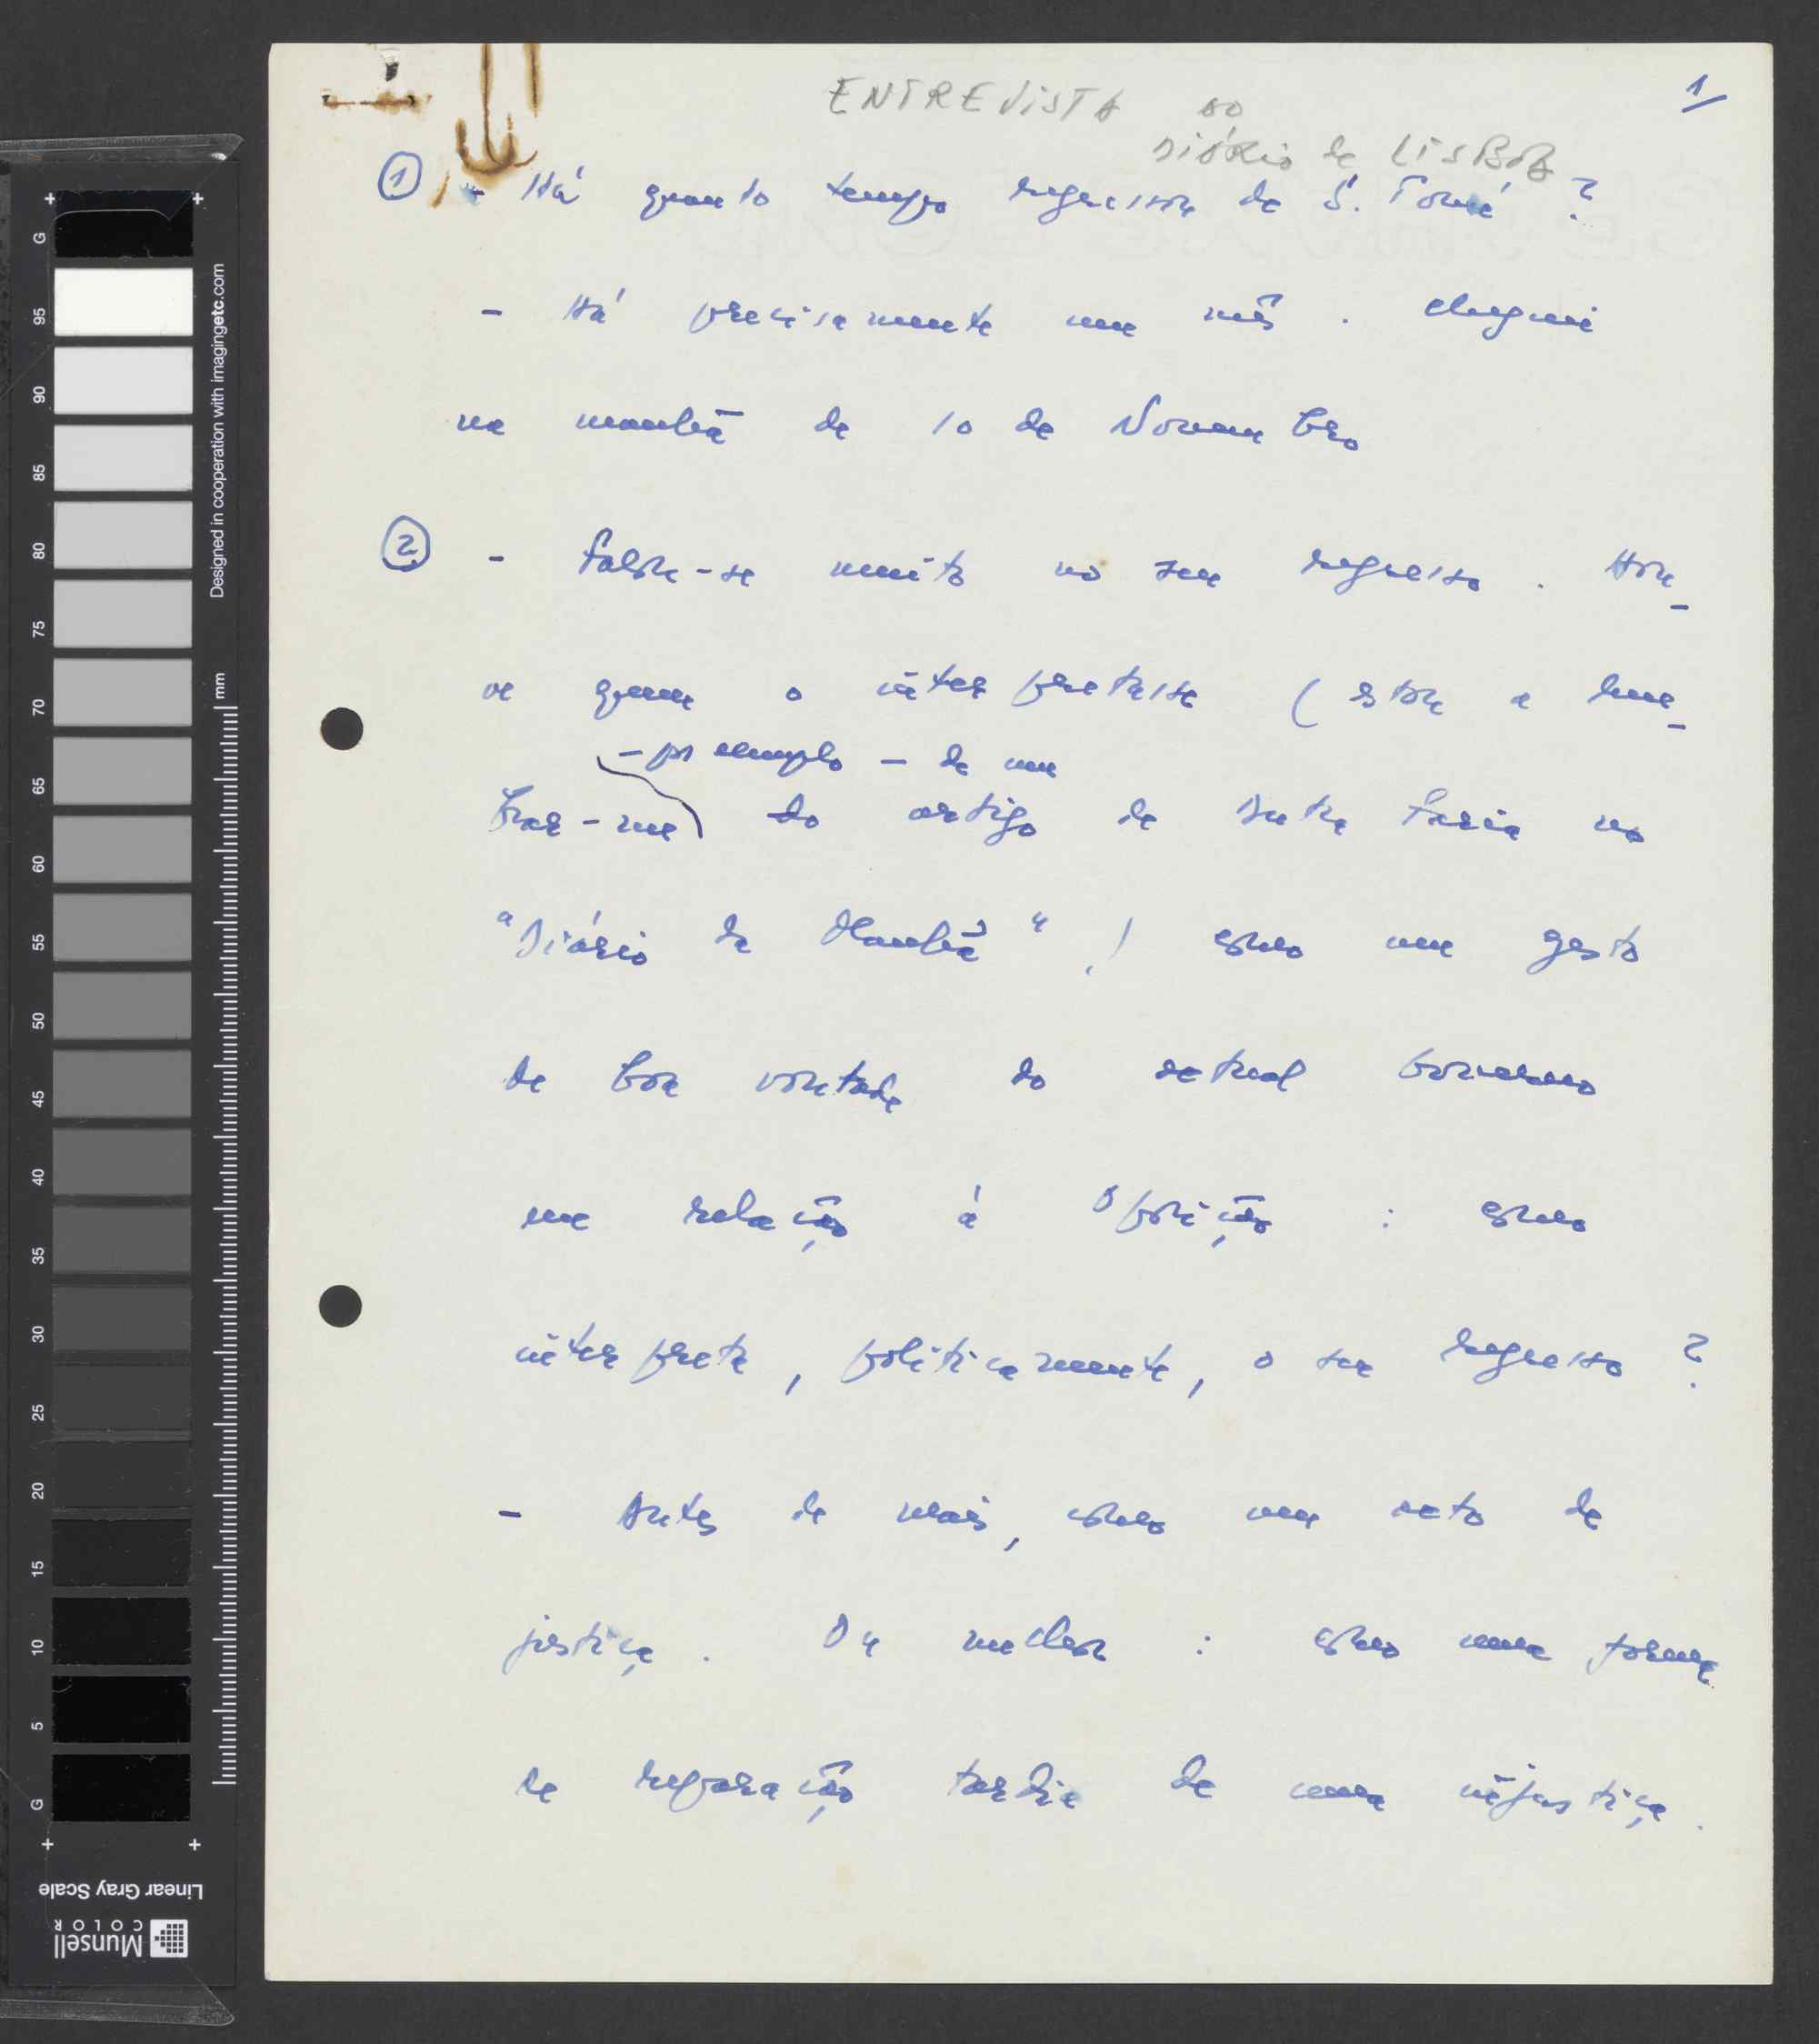 ENTREVISTA ao
DIÁRIO de LISBOA
1
① - Há quanto tempo regressou de S. Tomé?
- Há precisamente um mês. Cheguei
na manhã de 10 de Novembro
② - Falou-se muito no seu regresso. Hou-
ve quem o interpretasse (estou a lem-
- por exemplo - de um
brar-me do artigo de Dutra Faria no
"Diário da Manhã") como um gesto
de boa vontade do actual Governo
em relação à Oposição: como
interpreta, politicamente, o seu regresso?
- Antes de mais, como um acto de
justiça. Ou melhor: como uma forma
de reparação tardia de uma injustiça.
G
95
90
85
80
75
70
65
60
55
50
45
40
35
30
25
20
15
10
5
G
mm
Designed in cooperation with imagingetc.com
Linear Gray Scale
Munsell
COLOR